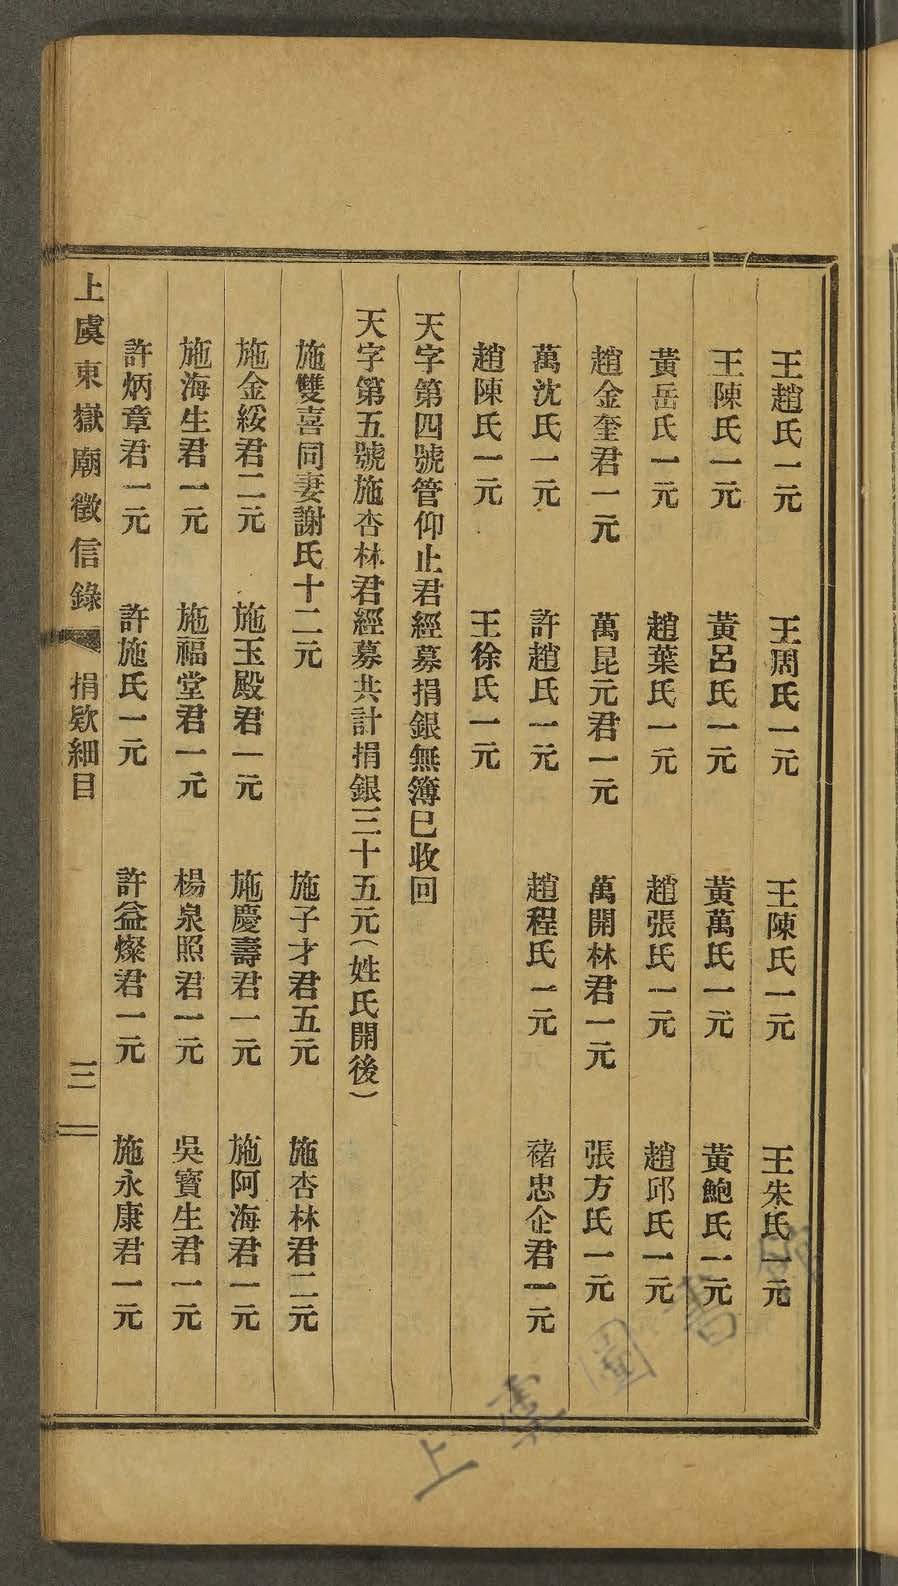 王趙氏一元　王周氏一元　王陳氏一元　王朱氏一元
王陳氏一元　黃呂氏一元　黃萬氏一元　黃鮑氏一元
黃岳氏一元　趙葉氏一元　趙張氏一元　趙邱氏一元
趙金奎君一元　萬昆元君一元　萬開林君一元　張方氏一元
萬沈氏一元　許趙氏一元　趙程氏一元　褚忠企君一元
趙陳氏一元　王徐氏一元
天字第四號管仰止君經募捐銀無簿已收回
天字第五號施杏林君經募共計捐銀三十五元（姓氏開後）
施雙喜同妻謝氏十二元　施子才君五元　施杏林君二元
施金綏君二元　施玉殿君一元　施慶壽君一元　施阿海君一元
施海生君一元　施福堂君一元　楊泉照君一元　吳寶生君一元
許炳章君一元　許施氏一元　許益燦君一元　施永康君一元
上虞東嶽廟徵信錄　捐欵細目　三
上虞圖書館